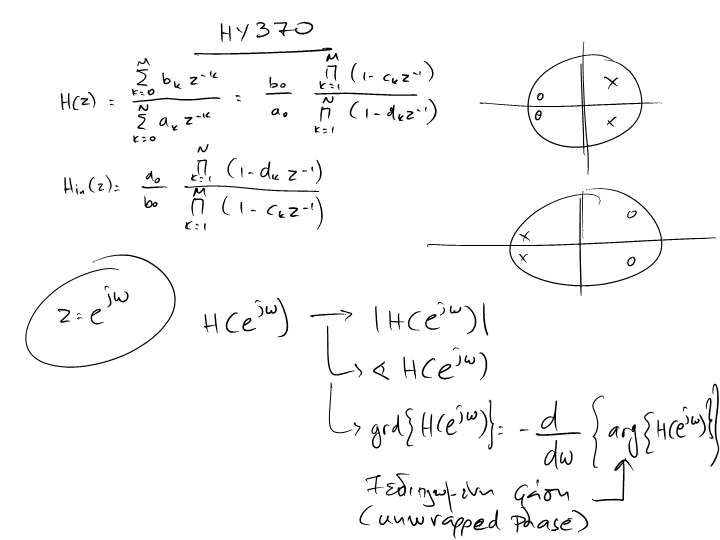 HY370
H(z) = \frac{\sum_{k=0}^{M} b_k z^{-k}}{\sum_{k=0}^{N} a_k z^{-k}} = \frac{b_0}{a_0} \frac{\prod_{k=1}^{M} (1 - c_k z^{-1})}{\prod_{k=1}^{N} (1 - d_k z^{-1})}
H_{in}(z) = \frac{a_0}{b_0} \frac{\prod_{k=1}^{N} (1 - d_k z^{-1})}{\prod_{k=1}^{M} (1 - c_k z^{-1})}
z = e^{jω}
H(e^{jω}) → |H(e^{jω})|
∢ H(e^{jω})
grd{H(e^{jω})} = - \frac{d}{dω} {arg{H(e^{jω})}}
Ξεδιπλωμένη φάση
(unwrapped phase)